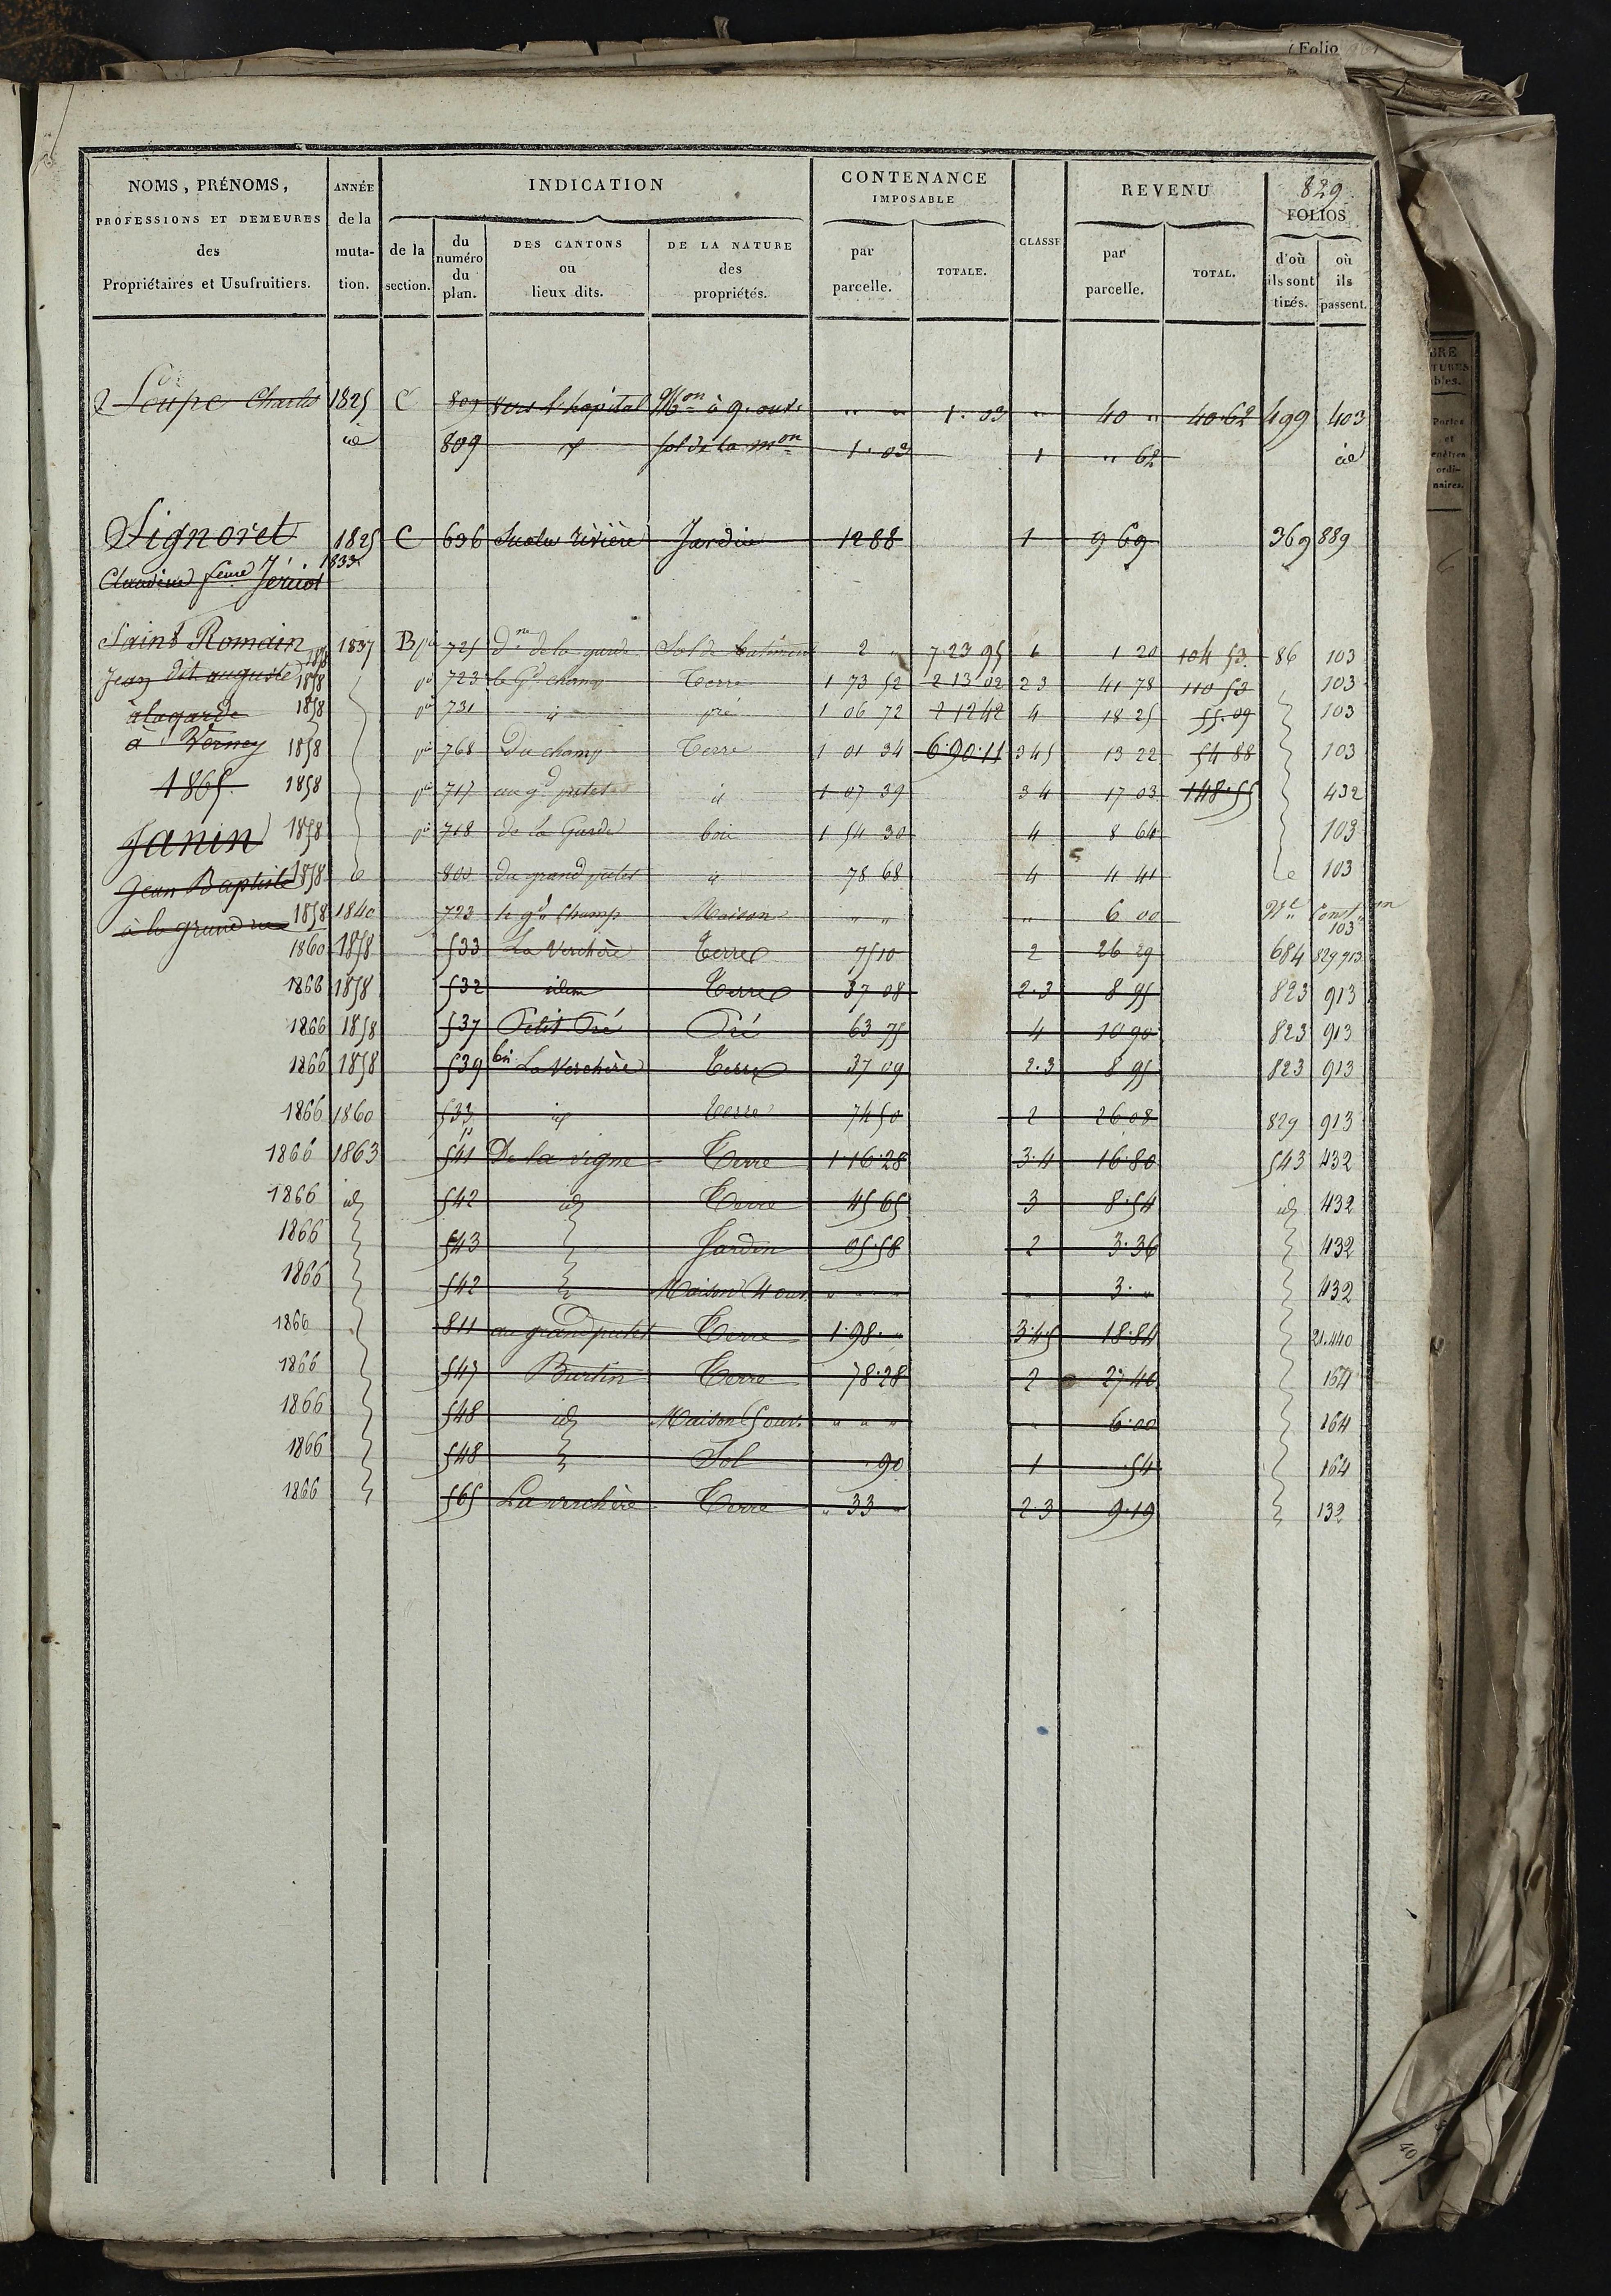 Folio
829
NOMS, PRÉNOMS, PROFESSIONS ET DEMEURES des Propriétaires et Usufruitiers.
ANNÉE de la muta- tion.
INDICATION
de la section.
du numéro du plan.
DES CANTONS ou lieux dits.
DE LA NATURE des propriétés.
CONTENANCE IMPOSABLE
par parcelle.
TOTALE.
CLASSE
REVENU
par parcelle.
TOTAL.
FOLIOS
d'où ils sont tirés.
où ils passent.
Loupe Charles 1825 C 809 vers l'hopital Mon à 9. ouv. " " 1. 03 " 40 " 40 62 499 403
id 809 id sol de la mon 1. 03 1 " 62 id
Signoret 1825 C 636 rivière Jardin 12 88 1 9 69 369 889
Claudine 1833
Saint Romain 1837 B pie 725 de la garde Sol de batiment 2 " 7 23 95 1 20 104 53 86 103
Jean dit auguste 1858 pie 723 le Gd champ Terre 1 73 52 2 13 02 2 3 41 78 110 53 103
à la garde 1858 pie 731 id pré 1 06 72 2 12 42 4 18 25 55.09 103
à Verney 1858 pie 768 Du champ Terre 1 01 34 6.90.11 3 4 5 13 22 54 88 103
1865 1858 pie 717 au gd id 1 07 39 3 4 17 03 148.55 432
Janin 1858 pie 718 de la Garde bois 1 54 30 4 8 64 103
Jean Baptiste 1858 800 du grand id 78 68 4 4 41 103
à la grand rue 1858 1840 723 le gd Champ Maison " " " 6 00 Nle Conston 103
1860 1858 533 La Verchère Terre 75 10 2 26 29 684 829 913
1866 1858 532 idem Terre 37 08 2.3 8 95 823 913
1866 1858 537 Petit Pré Pré 63 75 4 10 90 823 913
1866 1858 539 bis La Verchère Terre 37 09 2.3 8 95 823 913
1866 1860 533 id Terre 74 50 2 26 08 829 913
1866 1863 541 De la vigne Terre 1.16.28 3.4 16.80 543 432
1866 id 542 id Terre 45 65 3 8.54 id 432
1866 543 Jardin 05.58 2 3.36 432
1866 542 Maison 4 ouv. " " " 3. " 432
1866 811 au grand Terre 1.98. " 3.4.5 18.84 21.440
1866 547 Burtin Terre 78.28 2 27 40 164
1866 548 id Maison 5 ouv. " " " " 6.00 164
1866 548 Sol 90 1 .54 164
1866 565 La verchère Terre " 33 " 2.3 9.19 132
40